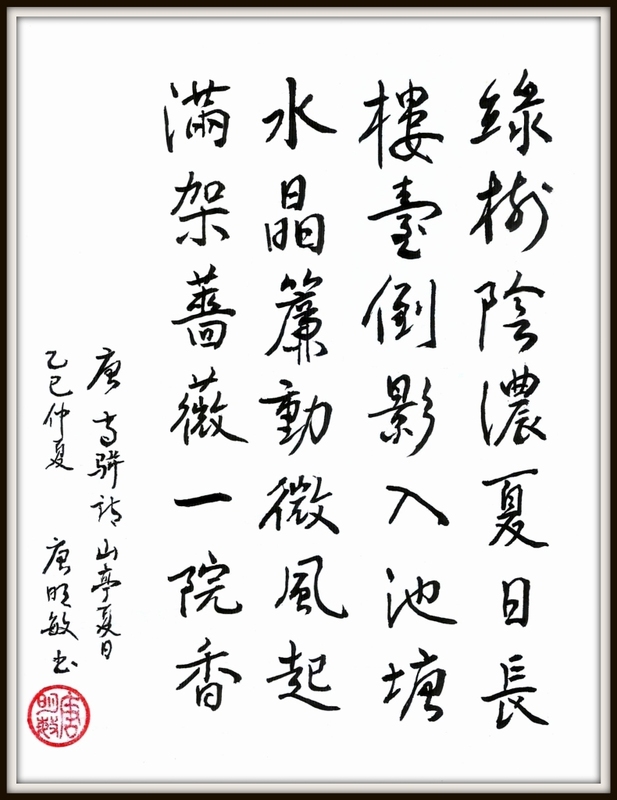 綠樹陰濃夏日長
樓臺倒影入池塘
水晶簾動微風起
滿架薔薇一院香
唐 高骈诗 山亭夏日
乙巳仲夏 唐明敏书
唐明敏